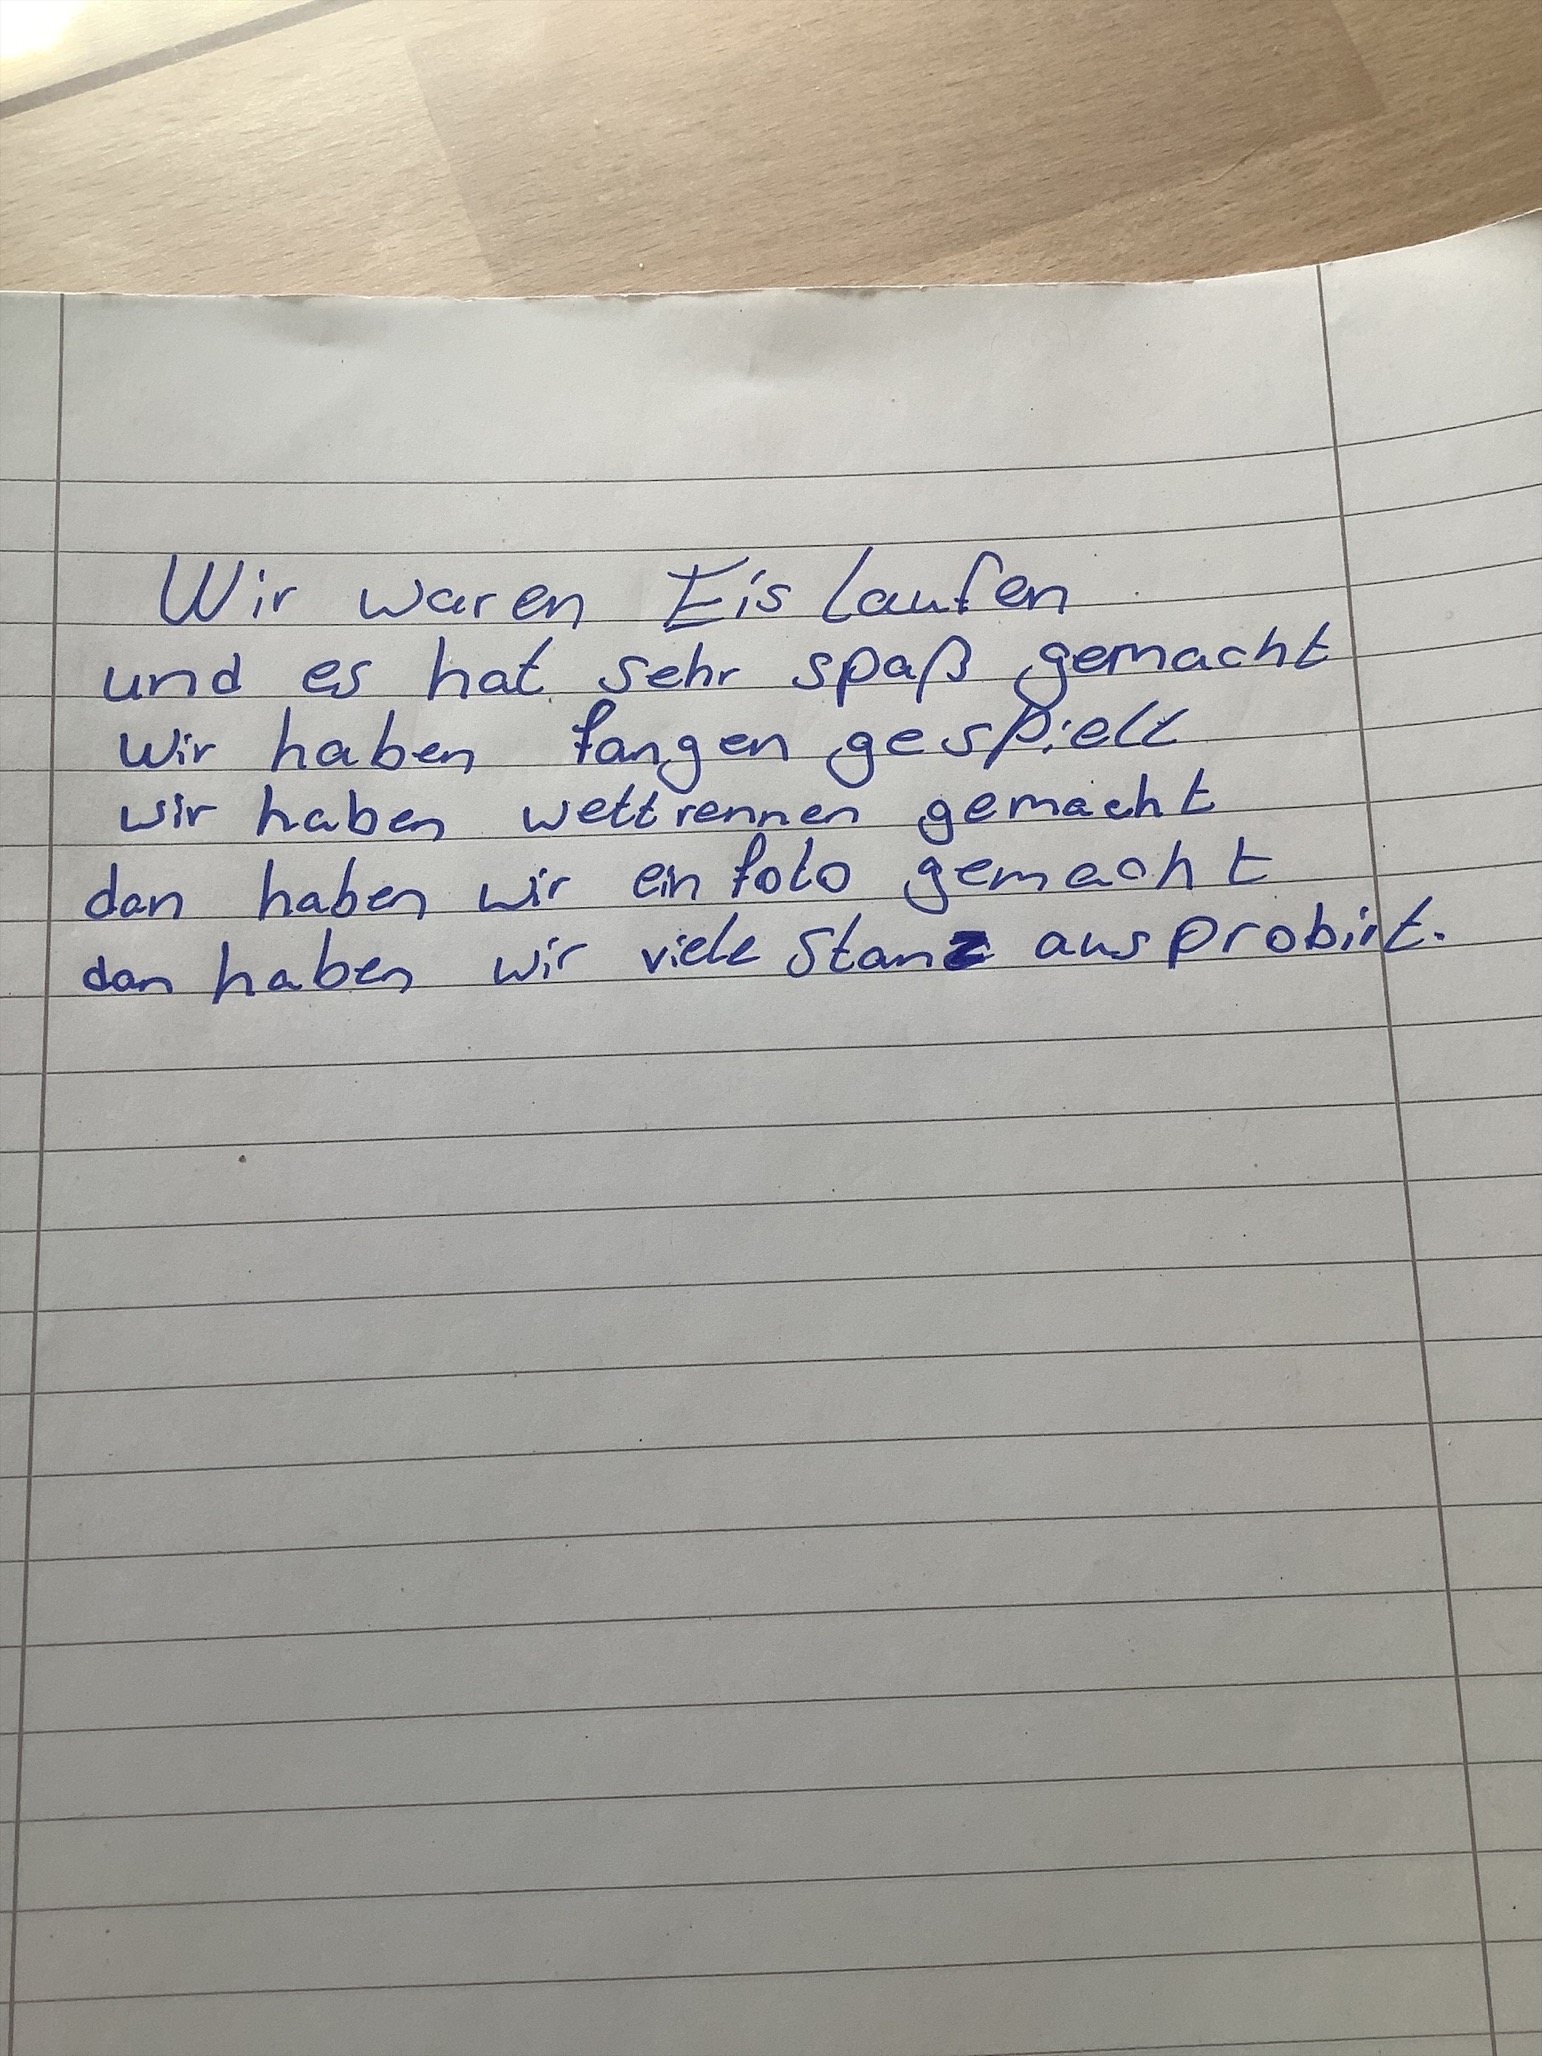 Wir waren Eis laufen
und es hat sehr spaß gemacht
wir haben fangen gespielt
wir haben wettrennen gemacht
dan haben wir ein foto gemacht
dan haben wir viele Stanz ausprobirt.